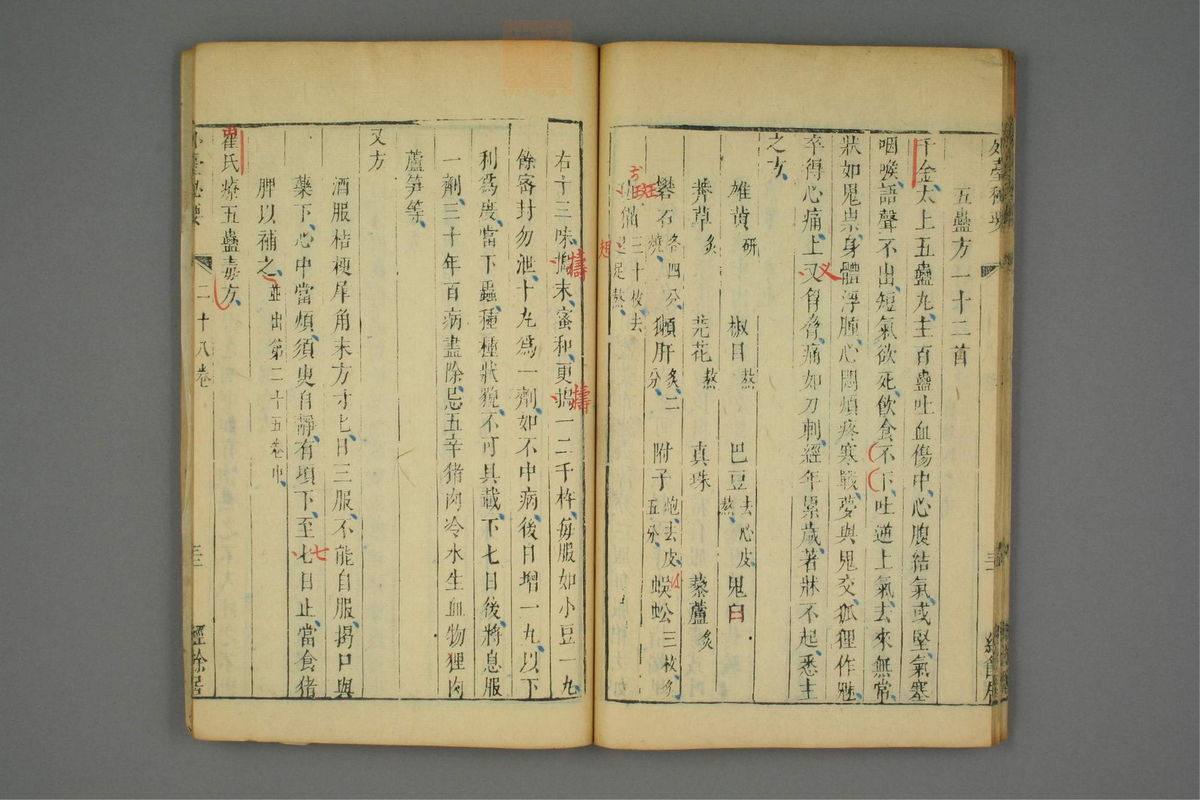 外臺秘要
五蠱方一十二首
千金太上五蠱丸主百蠱吐血傷中心腹結氣或堅氣塞
咽喉語聲不出短氣欲死飲食不下吐逆上氣去來無常
狀如鬼祟身體浮腫心悶煩疼寒戰夢與鬼交狐狸作魅
卒得心痛上叉胷脅痛如刀刺經年累歲著牀不起悉主
之方
雄黃研 椒目熬 巴豆去心皮熬 鬼臼
莽草炙 芫花熬 真珠 藜蘆炙
礬石燒各四分 獺肝炙二分 附子炮去皮五分 蜈蚣三枚炙
班猫三十枚去足熬
右十三味搗末蜜和更搗一二千杵每服如小豆一丸
餘密封勿泄十丸爲一劑如不中病後日增一丸以下
利爲度當下蟲種種狀貌不可具載下七日後將息服
一劑三十年百病盡除忌五辛猪肉冷水生血物狸肉
蘆笋等
又方
酒服桔梗犀角末方寸匕日三服不能自服揭口與
藥下心中當煩須臾自靜有頃下至七日止當食猪
脾以補之並出第二十五卷中
崔氏療五蠱毒方
外臺秘要 二十八卷 三三 經餘居